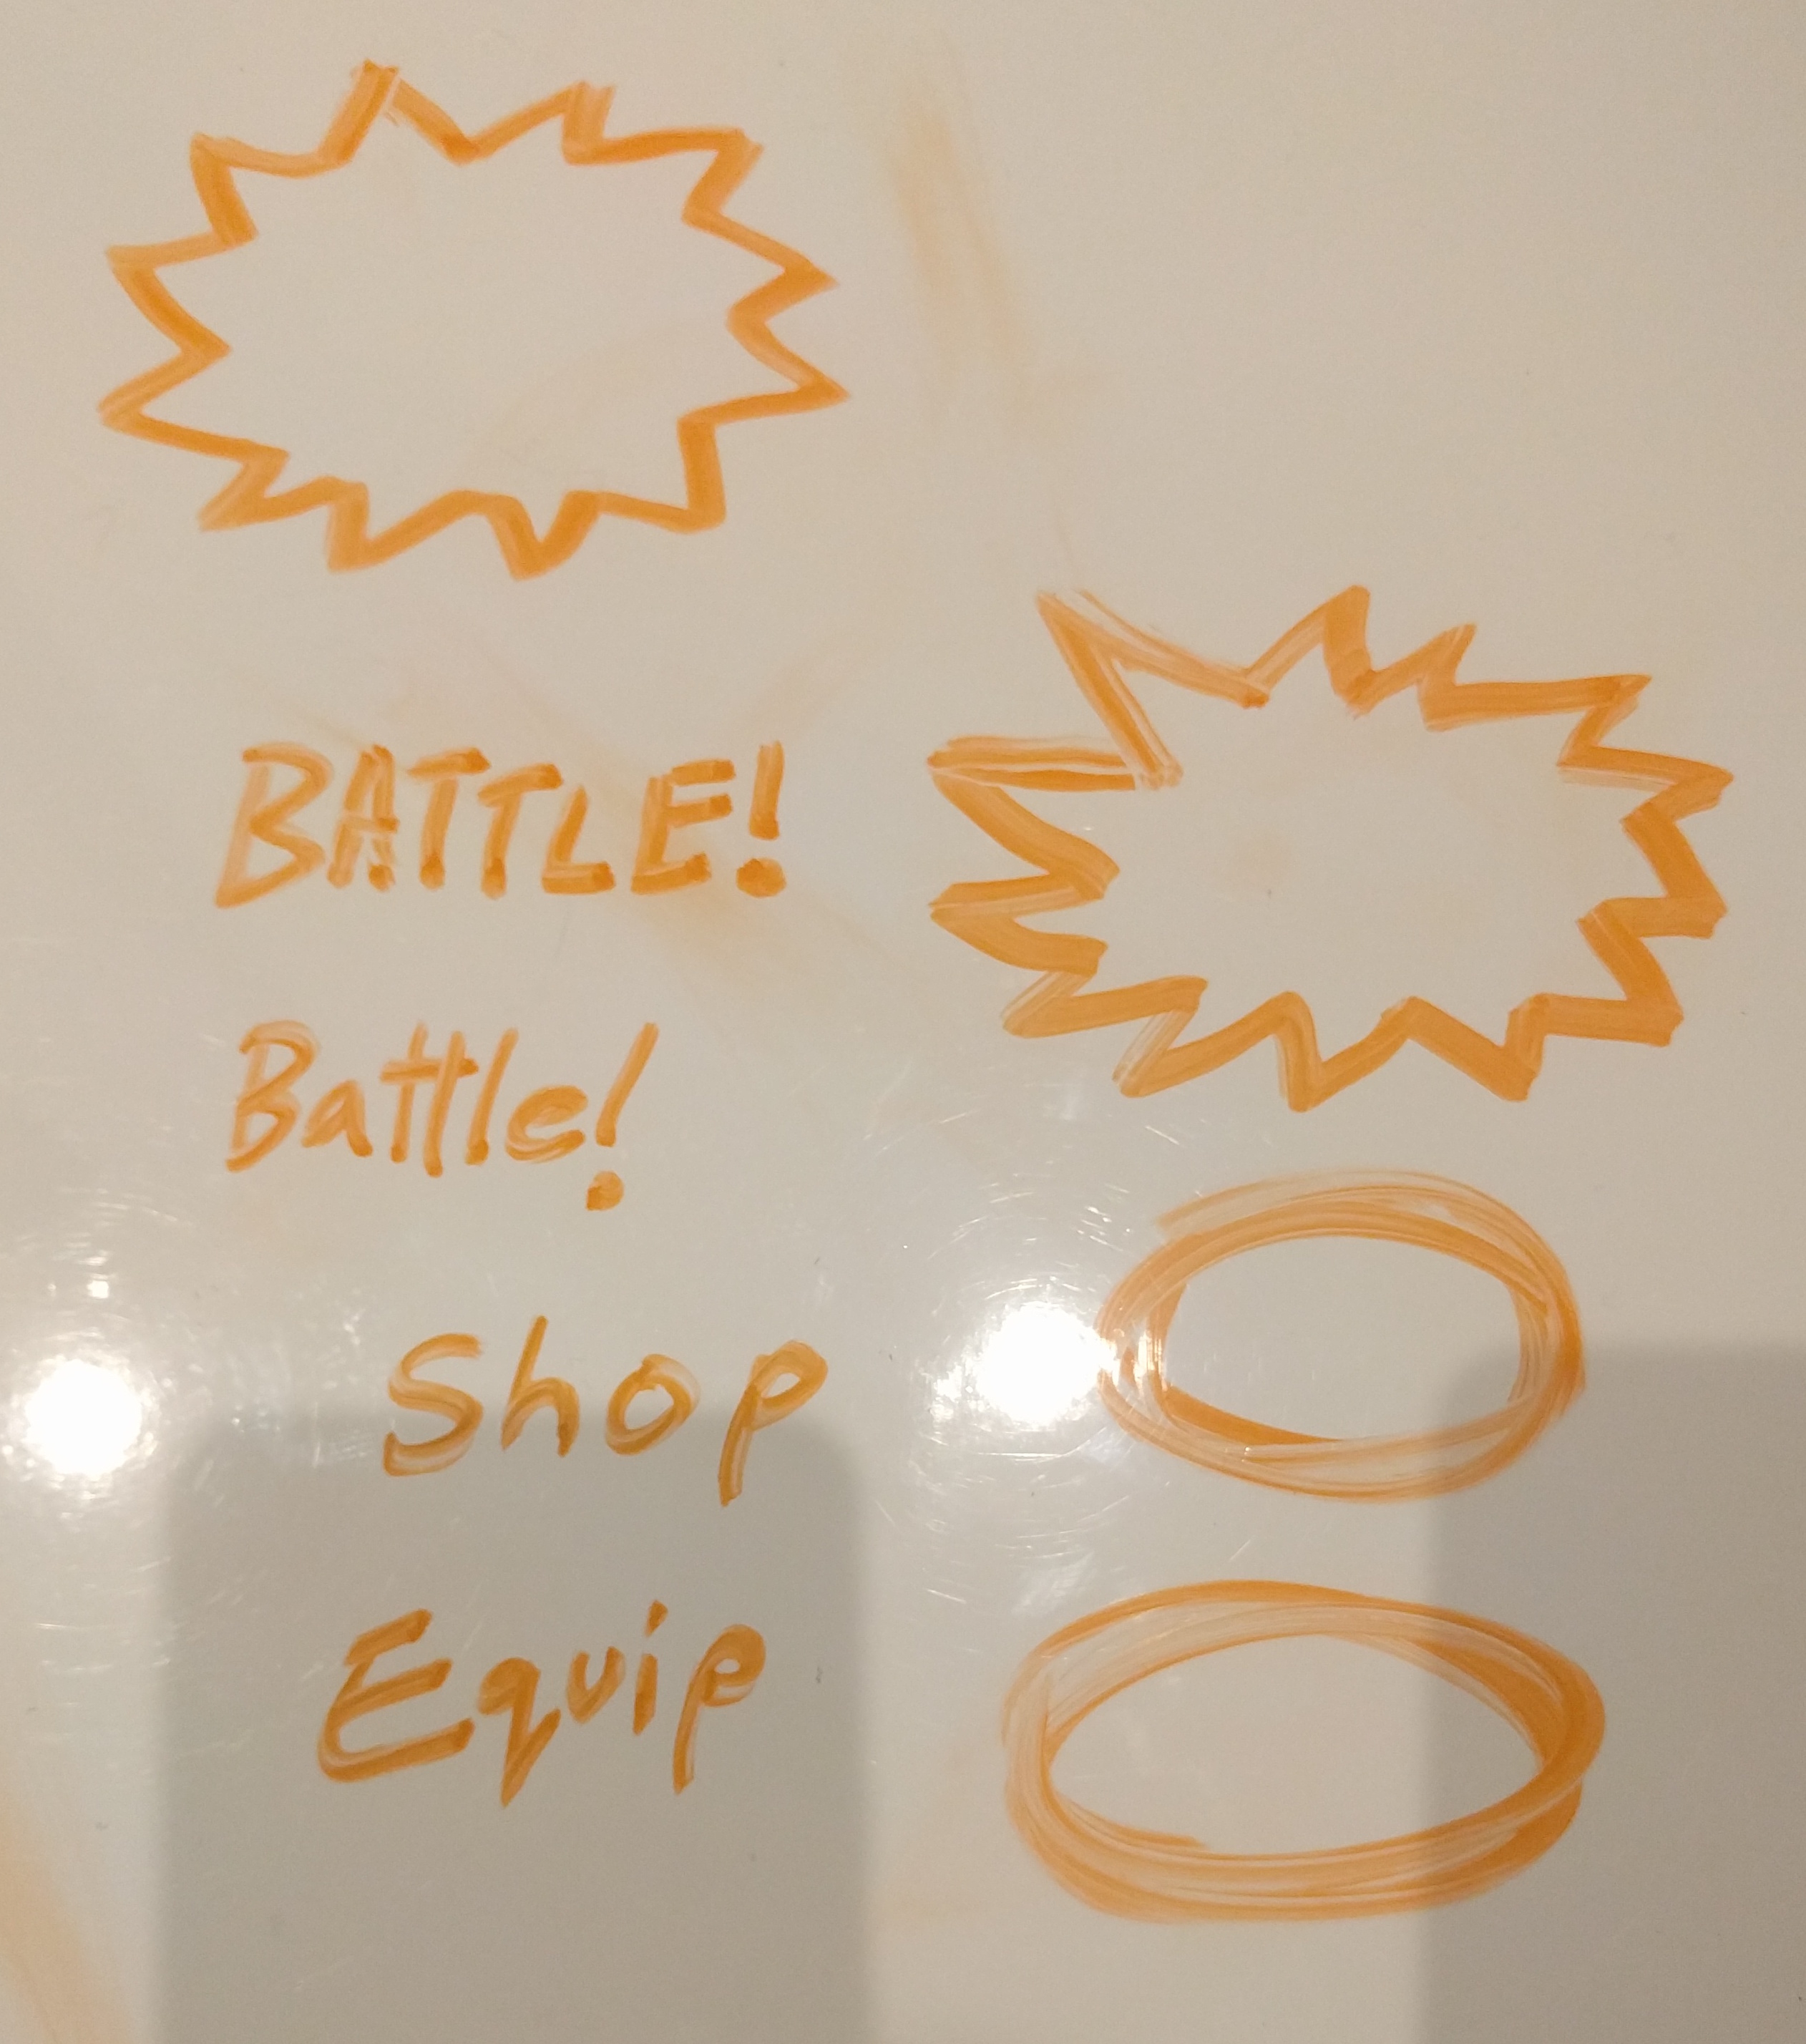 BATTLE!
Battle!
Shop
Equip